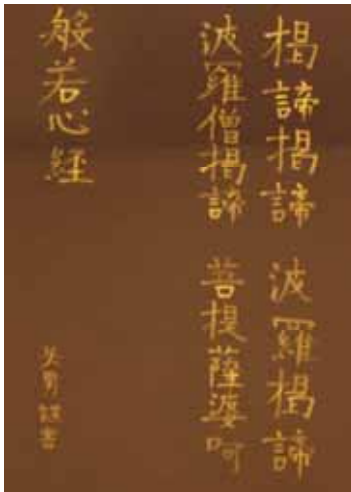 揭諦揭諦 波羅揭諦
波羅僧揭諦 菩提薩婆呵
般若心経